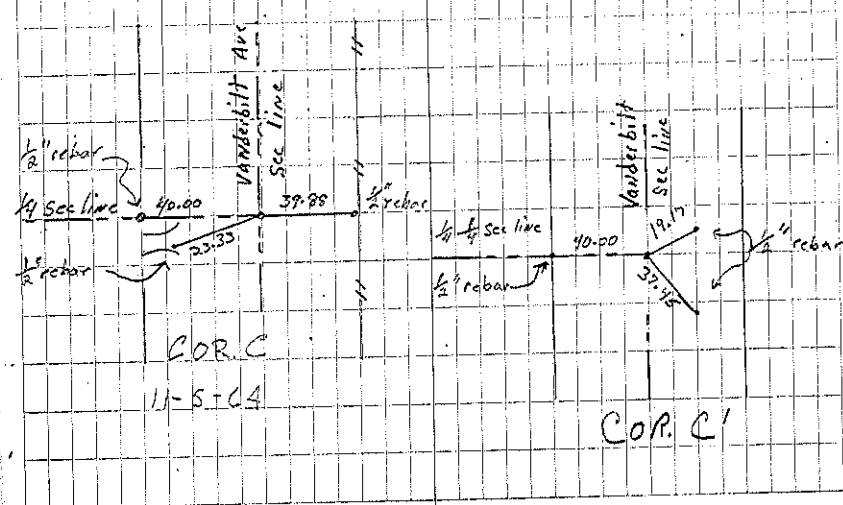 Vanderbilt Ave
Sec line
1/2" rebar
1/4 Sec line
40.00
39.88
1/2" rebar
23.33
1/2" rebar
COR. C
11-5-64
Vanderbilt
Sec line
1/4 1/4 Sec line
40.00
19.17
1/2" rebar
1/2" rebar
37.45
COR. C'